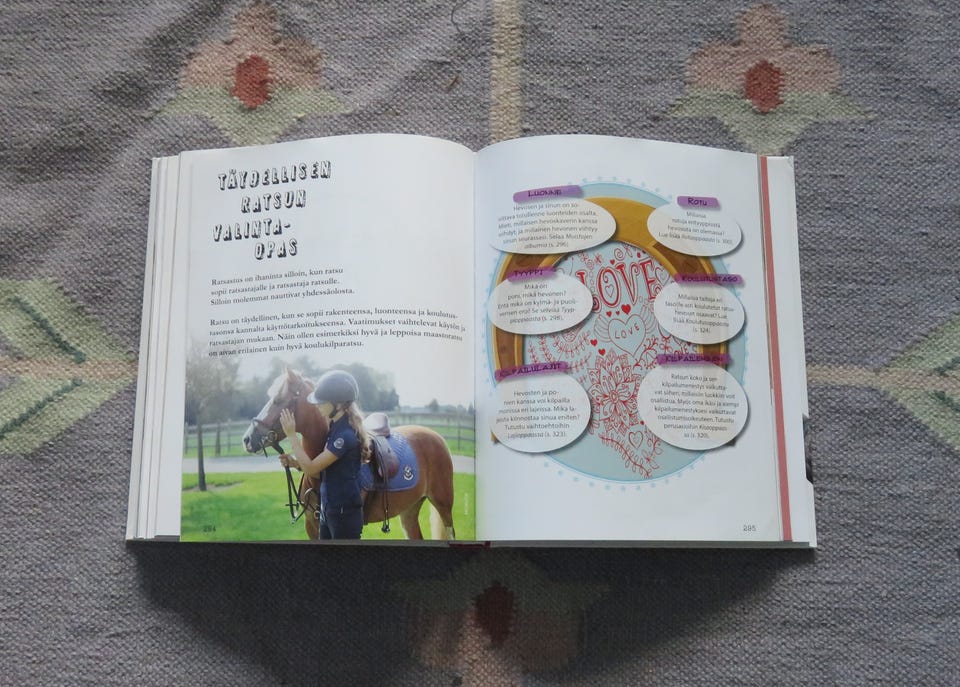 TÄYDELLISEN
RATSUN
VALINTA-
OPAS
Ratsastus on ihaninta silloin, kun ratsu
sopii ratsastajalle ja ratsastaja ratsulle.
Silloin molemmat nauttivat yhdessäolosta.
Ratsu on täydellinen, kun se sopii rakenteensa, luonteensa ja koulutus-
tasonsa kannalta käyttötarkoitukseensa. Vaatimukset vaihtelevat käytön ja
ratsastajan mukaan. Näin ollen esimerkiksi hyvä ja leppoisa maastoratsu
on aivan erilainen kuin hyvä koulukilparatsu.
294
LUONNE
Hevosen ja sinun on so-
vittava toisillenne luonteiden osalta.
Mieti, millainen hevoskaverin kanssa
viihdyt, ja millainen hevonen viihtyy
sinun seurassasi. Selaa Muistojen
albumia (s. 296).
ROTU
Millaisia
rotuja erityyppisistä
hevosista on olemassa?
Lue lisää Rotuoppaasta (s. 300)
TYYPPI
Mikä on
poni, mikä hevonen?
Entä mikä on kylmä- ja puoli-
verisen ero? Se selviää Tyyp-
pioppaasta (s. 298).
KOULUTUSTASO
Millaisia taitoja eri
tasoille on koulutetut ratsu-
hevoset osaavat? Lue
lisää Koulutusoppaasta
(s. 324).
LOVE
LOVE
KILPAILULAJIT
Hevosten ja po-
nien kanssa voi kilpailla
monissa eri lajeissa. Mikä la-
jeista kiinnostaa sinua eniten?
Tutustu vaihtoehtoihin
Lajioppaassa (s. 323).
KILPAILEMINEN
Ratsun koko ja sen
kilpailumenestys vaikutta-
vat siihen, millaisiin luokkiin voit
osallistua. Myös oma ikäsi ja aiempi
kilpailumenestyksesi vaikuttavat
osallistumisoikeuteen. Tutustu
perusasioihin Kisaoppaas-
sa (s. 320).
295